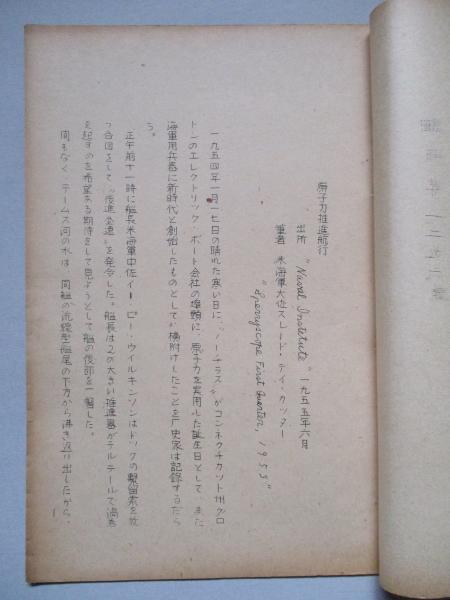 原子力推進航行
出所 "Naval Institute" 一九五五年六月
筆者 米海軍大佐スレード・デイ・カッター
"Sperryscope First Quarter, 1955"
一九五四年一月一七日の晴れた寒い日に、"ノーチラス"がコンネクチカット州グロ
トンのエレクトリック・ボート会社の埠頭に、原子力を実用した誕生日として、また
海軍用兵器に新時代を創始したものとして横附けしたことを歴史家は記録するだら
う。
正午前十一時に艦長米海軍中佐イー・ピー・ウイルキンソンはドックの繋留索を放
つ合図をして"後進全速"を発令した。艦長は2の大きい推進器がテルテールで渦巻
を起すのを希望ある期待をして見ようとして艦の後部を一瞥した。
間もなく、テームス河の水は、同艦の流線型艦尾の下方から沸き返り出したから、